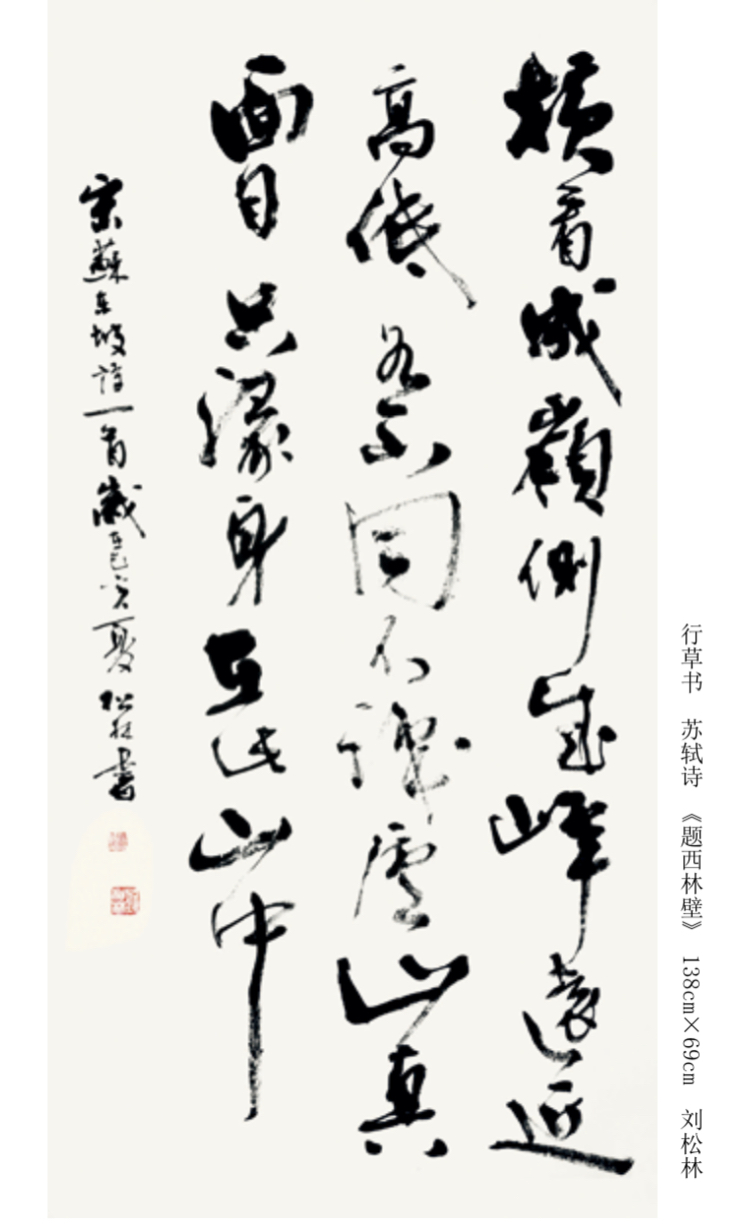 横看成嶺側成峰遠近
高低各不同不識廬山真
面目只緣身在此山中
宋蘇東坡詩一首歲在己亥夏松林書
行草书 苏轼诗 《题西林壁》 138cm×69cm 刘松林